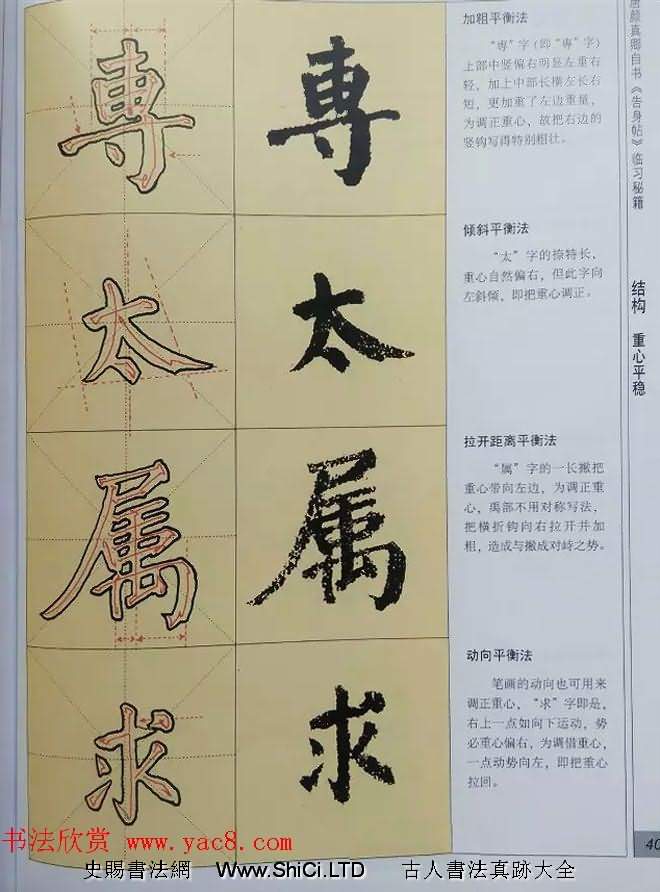 唐颜真卿自书《告身帖》临习秘籍
結构 重心平稳
40
専
専
加粗平衡法
“専”字(即“專”字)
上部中竖偏右明显左重右
轻，加上中部长横左长右
短，更加重了左边重量，
为调正重心，故把右边的
竖钩写得特别粗壮。
太
太
倾斜平衡法
“太”字的捺特长，
重心自然偏右，但此字向
左斜倾，即把重心调正。
属
属
拉开距离平衡法
“属”字的一长撇把
重心带向左边，为调正重
心，禹部不用对称写法，
把横折钩向右拉开并加
粗，造成与撇成对峙之势。
求
求
动向平衡法
笔画的动向也可用来
调正重心，“求”字即是，
右上一点如向下运动，势
必重心偏右，为调借重心，
一点动势向左，即把重心
拉回。
书法欣赏 www.yac8.com
史賜書法網 www.ShiCi.LTD 古人書法真跡大全